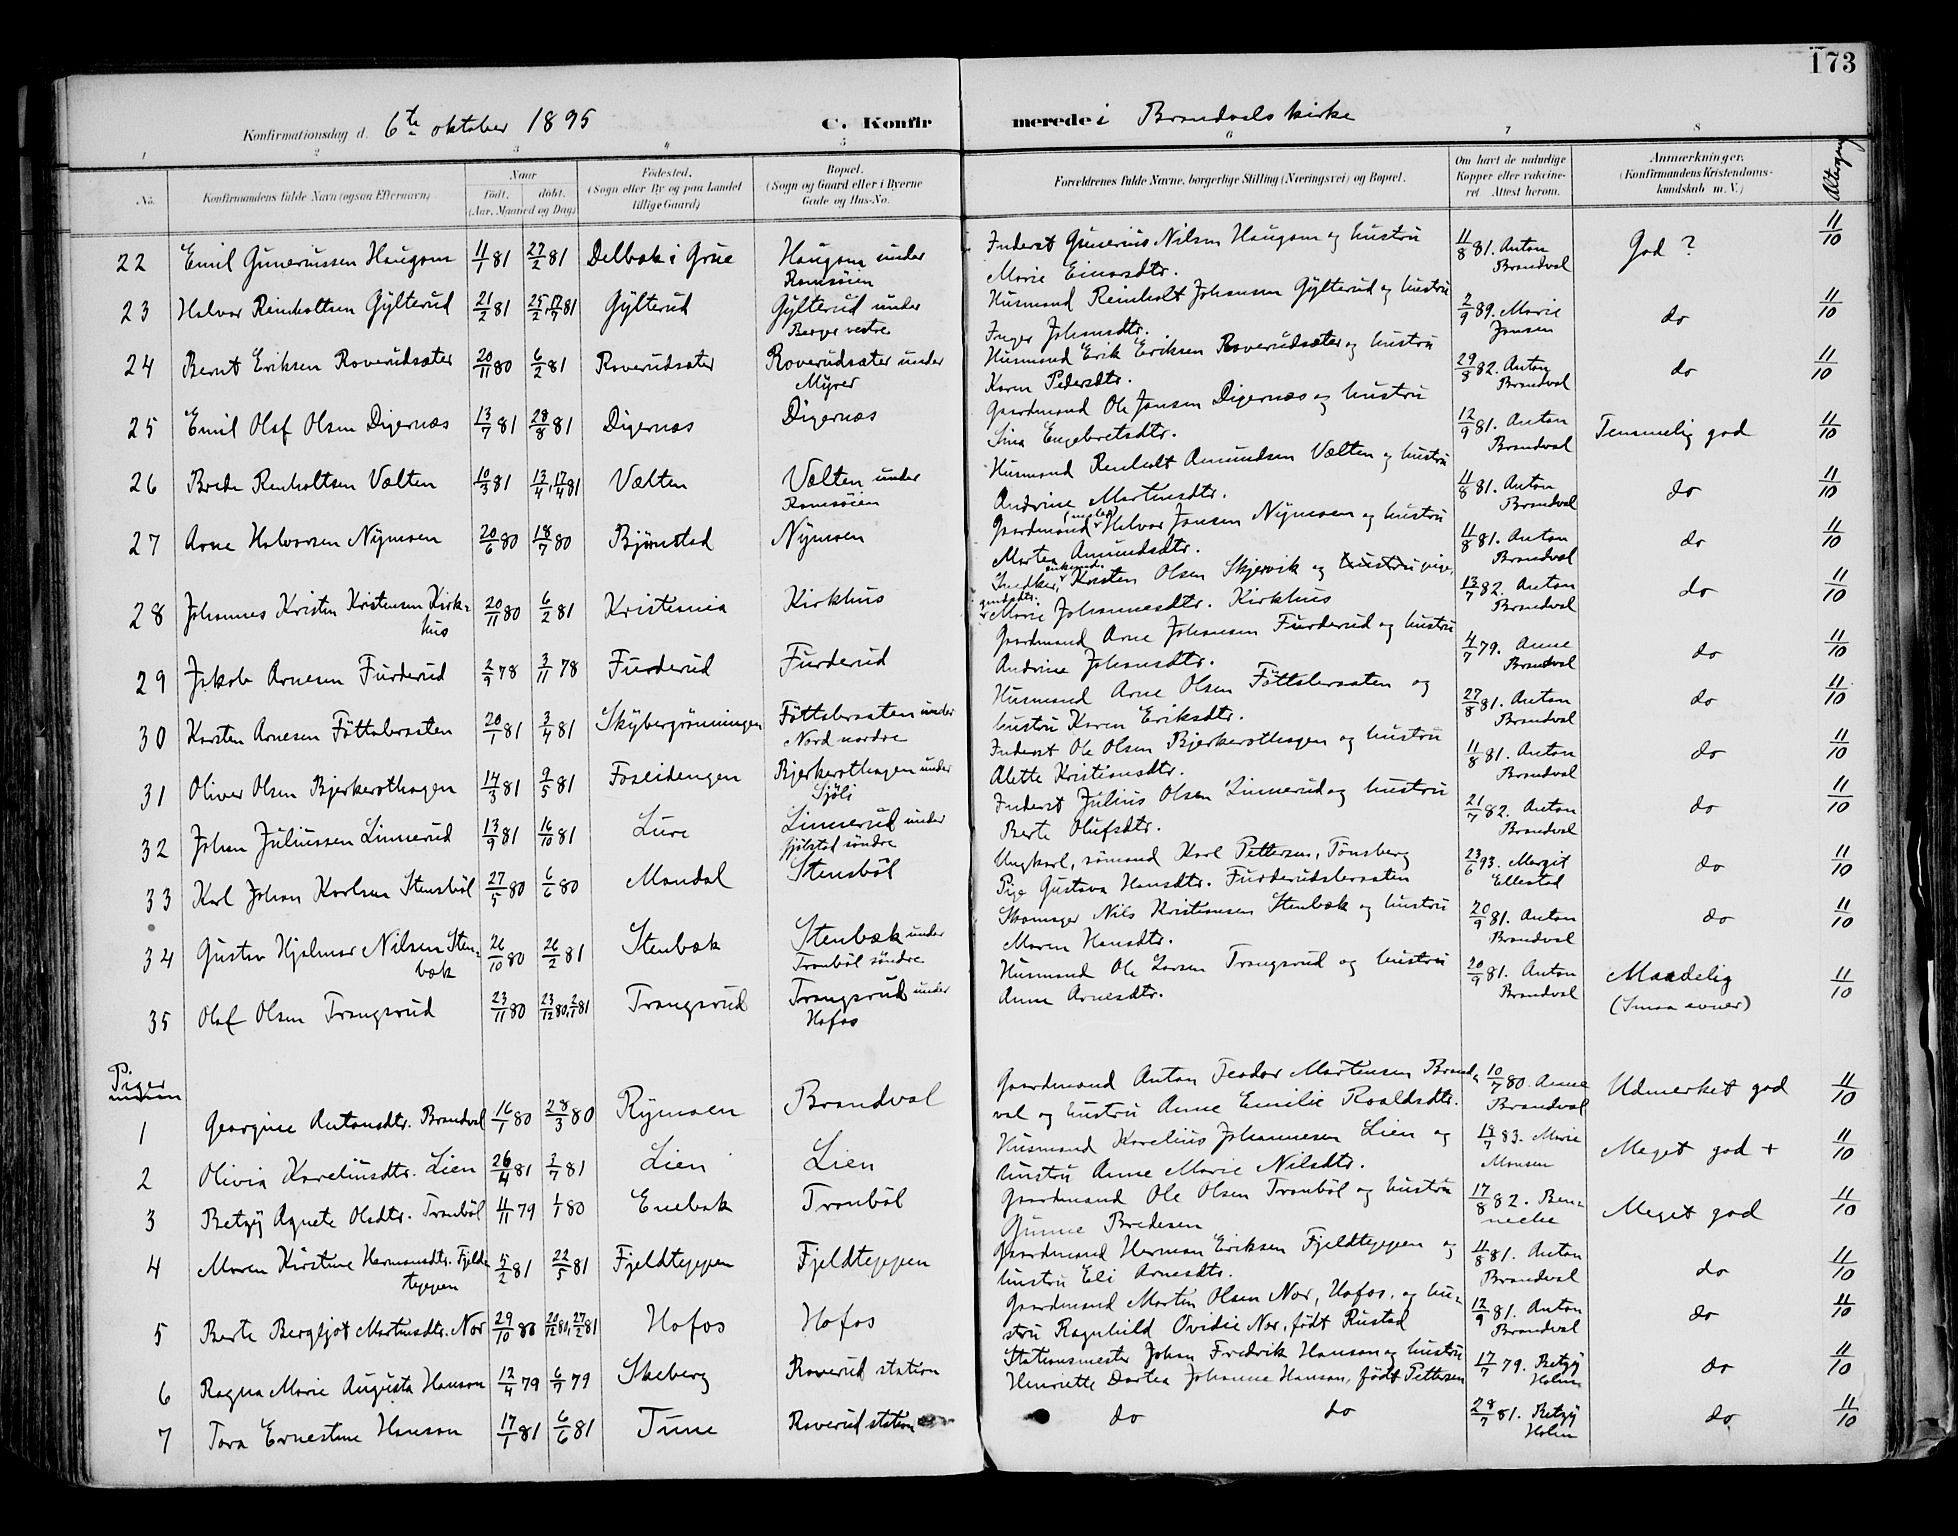 173
Konfirmationsdag d. 6te oktober 1895 C. Konfirmerede i Brandvals kirke
1 2 3 4 5 6 7 8
No. Konfirmandens fulde Navn (ogsaa Efternavn). Naar født, døbt. (Aar, Maaned og Dag). Fødested. (Sogn eller By og paa Landet tillige Gaard) Bopæl. (Sogn og Gaard eller i Byerne Gade og Hus-No. Forældrenes fulde Navne, borgerlige Stilling (Næringsvei) og Bopæl. Om havt de naturlige Kopper eller vaccineret. Attest herom. Anmærkninger. (Konfirmandens Kristendomskundskab m. V.) Altergang
22 Emil Gunerius​sen Haugom 11/1 81 27/2 81 Delbæk i Grue Haugom under Romsöien Inderst Gunerius Nilsen Haugom og hustru Marie Einarsdtr. 11/8 81. Anton Brandval God ? 11/10
23 Halvor Reinholtsen Gylterud 21/2 81 25/2, 17/7 81 Gylterud Gylterud under Berger vestre Husmand Reinholt Johansen Gylterud og hustru Inger Johansdtr. 2/9 89. Marie Jonsen do 11/10
24 Bernt Eriksen Roverudsæter 20/11 80 6/2 81 Roverudsæter Roverudsæter under Myrer Husmand Erik Eriksen Roverudsæter og hustru Karen Pedersdtr. 29/8 82. Anton Brandval do 11/10
25 Emil Olaf Olsen Digernæs 13/7 81 28/8 81 Digernæs Digernæs Gaardmand Ole Jansen Digernæs og hustru Sina Engebretsdtr. 12/9 81. Anton Brandval Temmelig god 11/10
26 Brede Renholtsen Vælten 10/3 81 13/4, 17/4 81 Vælten Vælten under Romsöien Husmand Renholt Amundsen Vælten og hustru Andrine Martinsdtr. 11/8 81. Anton Brandval do 11/10
27 Arne Halvorsen Nymoen 20/6 80 18/7 80 Bjørnstad Nymoen Gaardmand Halvor Jansen Nymoen og hustru Marten Amundsdtr. 11/8 81. Anton Brandval do 11/10
28 Johannes Kristen Kristensen Kirkhus 20/11 80 6/2 81 Kristiania Kirkhus Snedker, enkemand Kristen Olsen Skjervik og hustru pige, Marie Johannesdtr. Kirkhus 13/7 82. Anton Brandval do 11/10
29 Jakob Arnesen Furderud 2/9 78 3/11 78 Furderud Furderud Gaardmand Arne Johansen Furderud og hustru Andrine Johansdtr. 4/7 79. Anne Brandval do 11/10
30 Karsten Arnesen Föttsbraaten 20/1 81 3/4 81 Skybergrønningen Föttsbraaten under Nord nordre Husmand Arne Olsen Föttsbraaten og hustru Karen Eriksdtr. 27/8 81. Anton Brandval do 11/10
31 Oliver Olsen Bjerkerothagen 14/3 81 9/5 81 Foseidengen Bjerkerothagen under Sjöli Inderst Ole Olsen Bjerkerothagen og hustru Alette Kristiansdtr. 11/8 81. Anton Brandval do 11/10
32 Johan Juliussen Linnerud 13/9 81 16/10 81 Lure Linnerud under Hjölstad søndre Inderst Julius Olsen Linnerud og hustru Berte Olufsdtr. 21/7 82. Anton Brandval do 11/10
33 Karl Johan Karlsen Stensböl 27/5 80 6/6 80 Mandal Stensböl Ungkarl, sømand Karl Pettersen, Tønsberg Pige Gustava Hansdtr. Furderudsbraaten 23/6 93. Margit Ellestad do 11/10
34 Gustav Hjalmar Nilsen Stenbæk 26/10 80 26/2 81 Stenbæk Stenbæk under Tronböl söndre Skomager Nils Kristiansen Stenbæk og hustru Maren Hansdtr. 20/9 81. Anton Brandval do 11/10
35 Olaf Olsen Trangsrud 23/11 80 23/12 80, 2/1 81 Trangsrud Trangsrud under Hofos Husmand Ole Larsen Trangsrud og hustru Anne Arnesdtr. 20/9 81. Anton Brandval Maadelig (Smaa evner) 11/10
Piger
1 Georgine Antonsdtr. Brandval 16/1 80 28/3 80 Rymoen Brandval Gaardmand Anton Teodor Martensen Brandval og hustru Anne Emilie Roaldsdtr. 10/7 80. Anne Brandval Udmerket god 11/10
2 Olivia Kareliusdtr. Lien 26/4 81 3/7 81 Lien Lien Husmand Karelius Johannesen Lien og hustru Anne Marie Nilsdtr. 19/7 83. Marie Monsen Meget god + 11/10
3 Betzy Agnete Olsdtr. Tronböl 11/11 79 1/1 80 Enebak Tronböl Gaardmand Ole Olsen Tronböl og hustru Gunne Bredesen 17/8 82. Benneche Meget god 11/10
4 Maren Kirstine Hermansdtr. Fjeldteppen 5/2 81 22/5 81 Fjeldteppen Fjeldteppen Gaardmand Herman Eriksen Fjeldteppen og hustru Eli Arnesdtr. 11/8 81. Anton Brandval do 11/10
5 Berte Bergljot Martinsdtr. Nor 29/10 80 20/12 80, 27/2 81 Hofos Hofos Gaardmand Martin Olsen Nor, Hofos, og hustru Ragnhild Ovidie Nor, født Rustad 12/9 81. Anton Brandval do 11/10
6 Ragna Marie Augusta Hanson 12/4 79 6/7 79 Skeberg Roverud station Stationsmester Johan Fredrik Hanson og hustru Henriette Dortea Johanne Hanson, født Pettersen 17/7 79. Betzy Holm do 11/10
7 Tora Ernestine Hanson 17/1 81 6/6 81 Tune Roverud station do do 28/7 81. Betzy Holm do 11/10